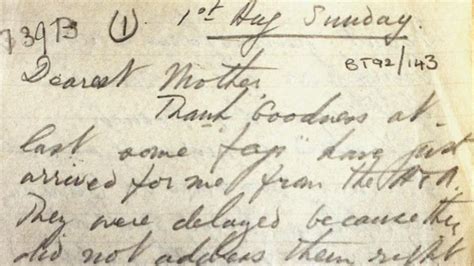 739B (1) 1st Aug Sunday.
BT92/143
Dearest Mother,
Thank Goodness at
last some "fags" have just
arrived for me from the
They were delayed because they
did not address them right